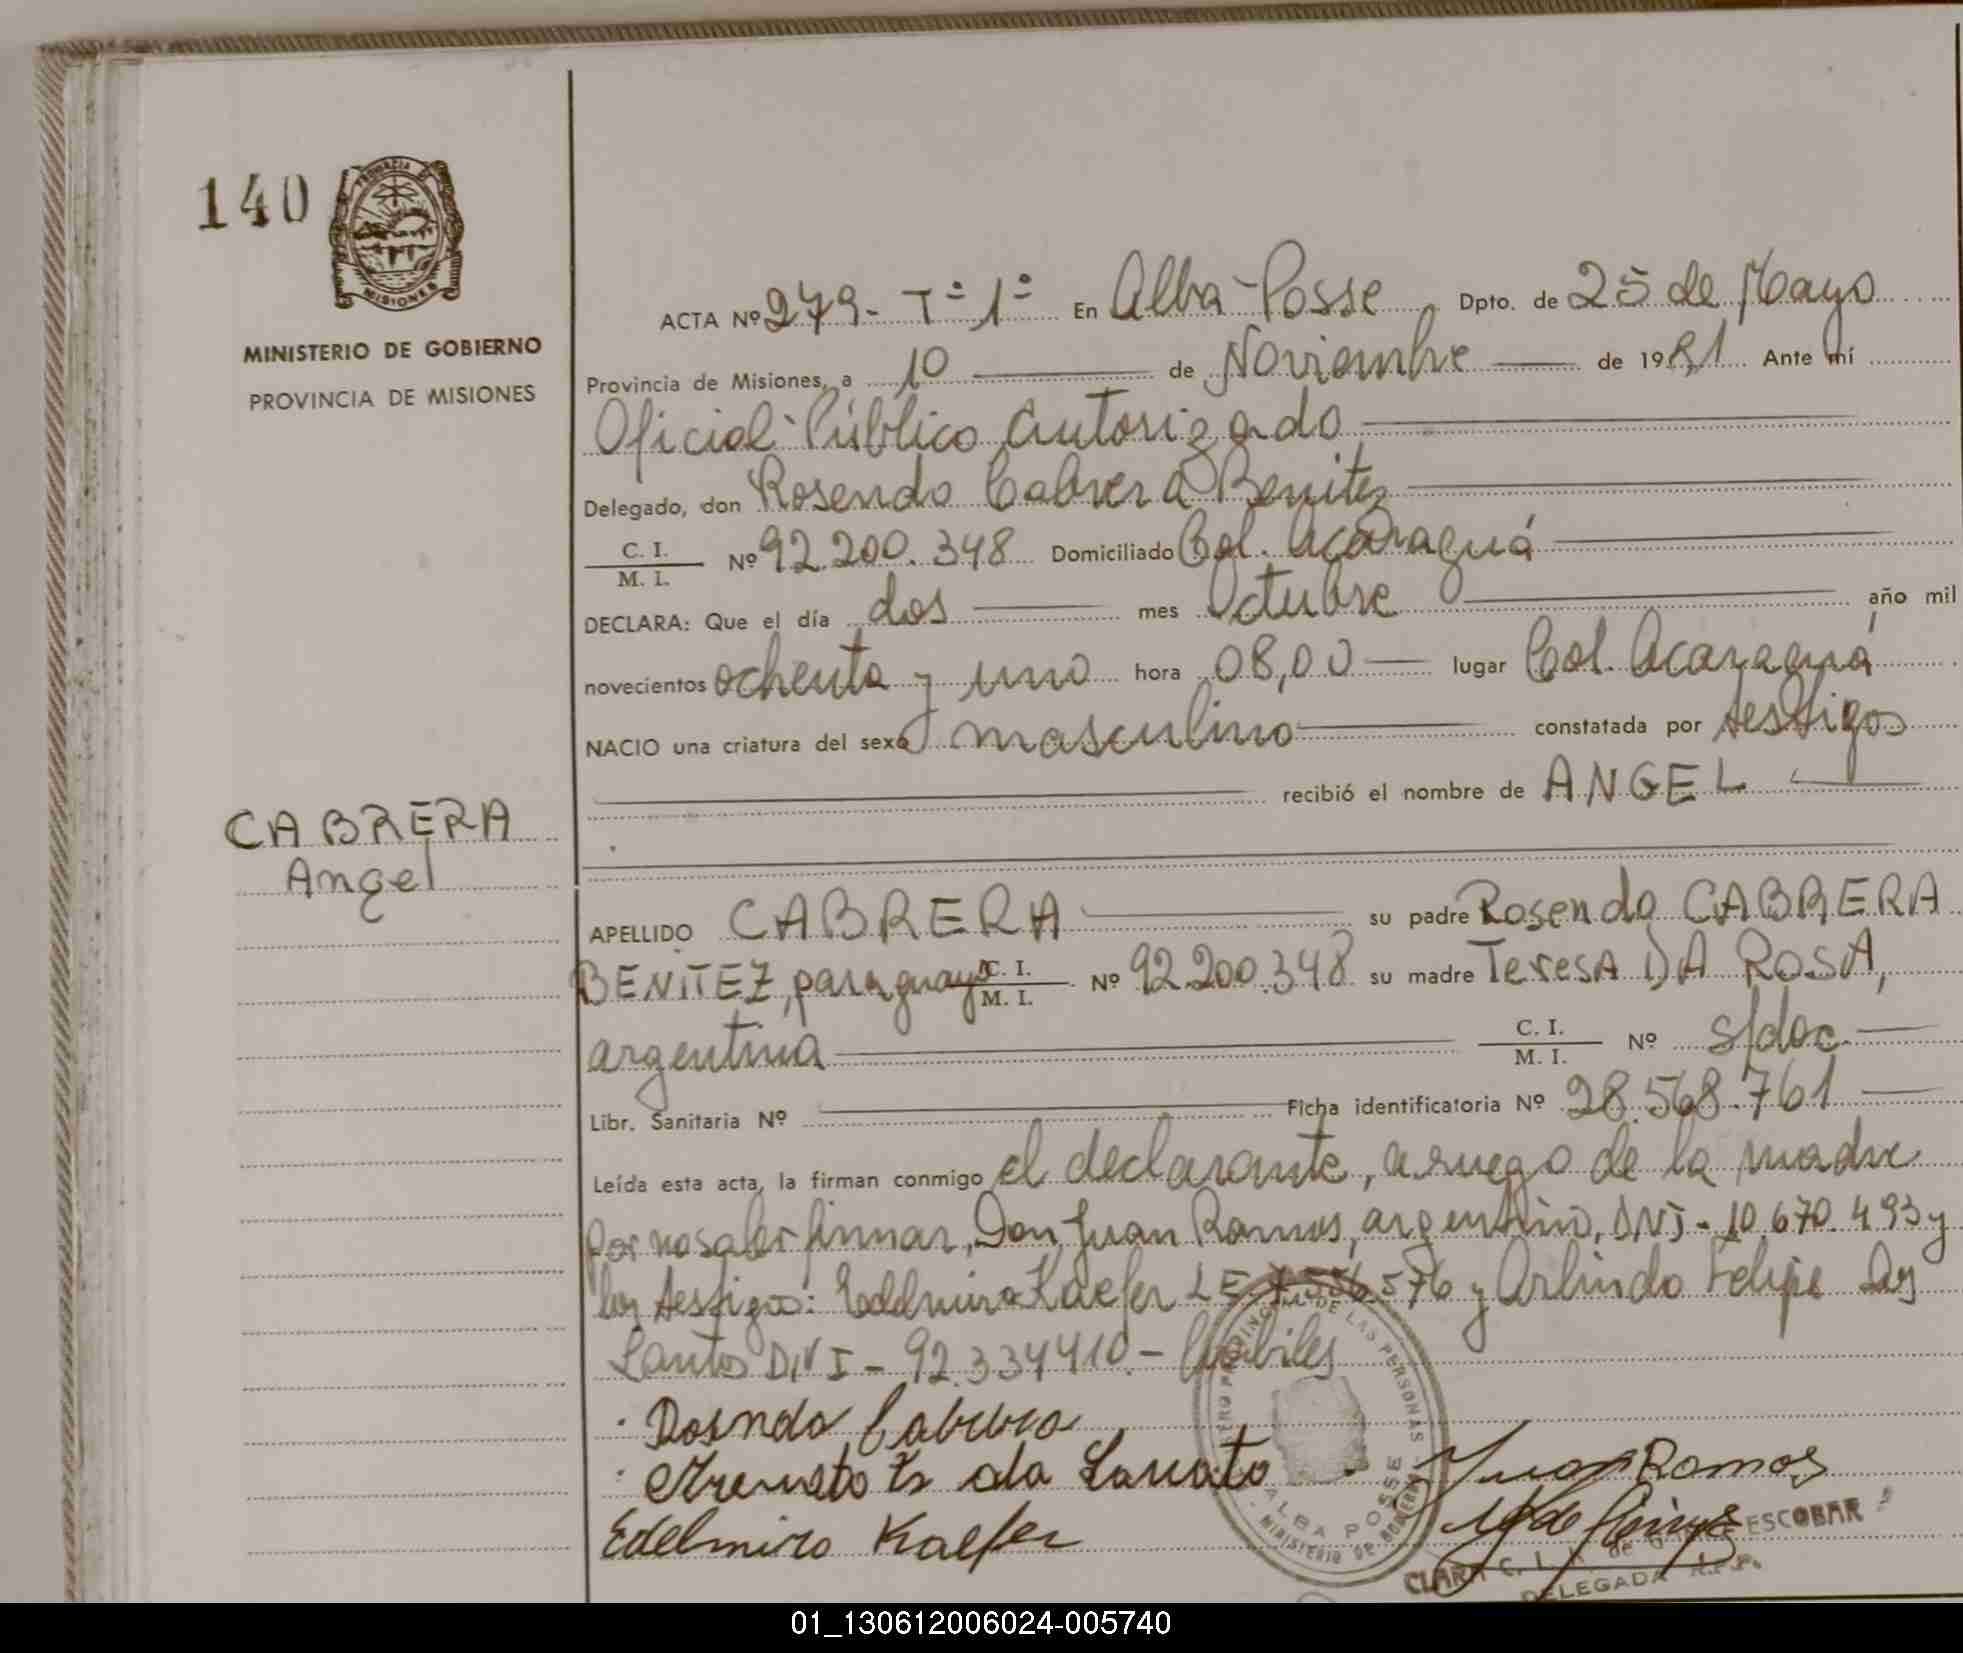 140
PROVINCIA DE
MISIONES
MINISTERIO DE GOBIERNO
PROVINCIA DE MISIONES
CABRERA
Angel
ACTA Nº 279- Tº 1º En Alba-Posse Dpto. de 25 de Mayo
Provincia de Misiones, a 10 de Noviembre de 1981 Ante mí
Oficial Público Autorizado
Delegado, don Rosendo Cabrera Benitez
C. I.
M. I. Nº 92.200.348 Domiciliado Col. Acaraguá
DECLARA: Que el día dos mes Octubre año mil
novecientos ochenta y uno hora 08,00 lugar Col. Acaraguá
NACIO una criatura del sexo masculino constatada por testigos
recibió el nombre de ANGEL
APELLIDO CABRERA su padre Rosendo CABRERA
BENITEZ, paraguayo C. I.
M. I. Nº 92.200.348 su madre Teresa DA ROSA,
argentina C. I.
M. I. Nº s/doc.
Libr. Sanitaria Nº Ficha identificatoria Nº 28.568.761
Leída esta acta, la firman conmigo el declarante, a ruego de la madre
por no saber firmar, Don Juan Ramos, argentino, DNI- 10.670.493 y
los testigos: Edelmiro Kaefer LE 7.556.576 y Arlindo Felipe Dos
Santos DNI - 92.334410.-
Rosendo Cabrera
Juan Ramos
Edelmiro Kaefer
DE LAS PERSONAS
ALBA POSSE
MINISTERIO DE GOBIERNO
ESCOBAR
CLARA C. L.
DELEGADA R.P.P.
01_130612006024-005740